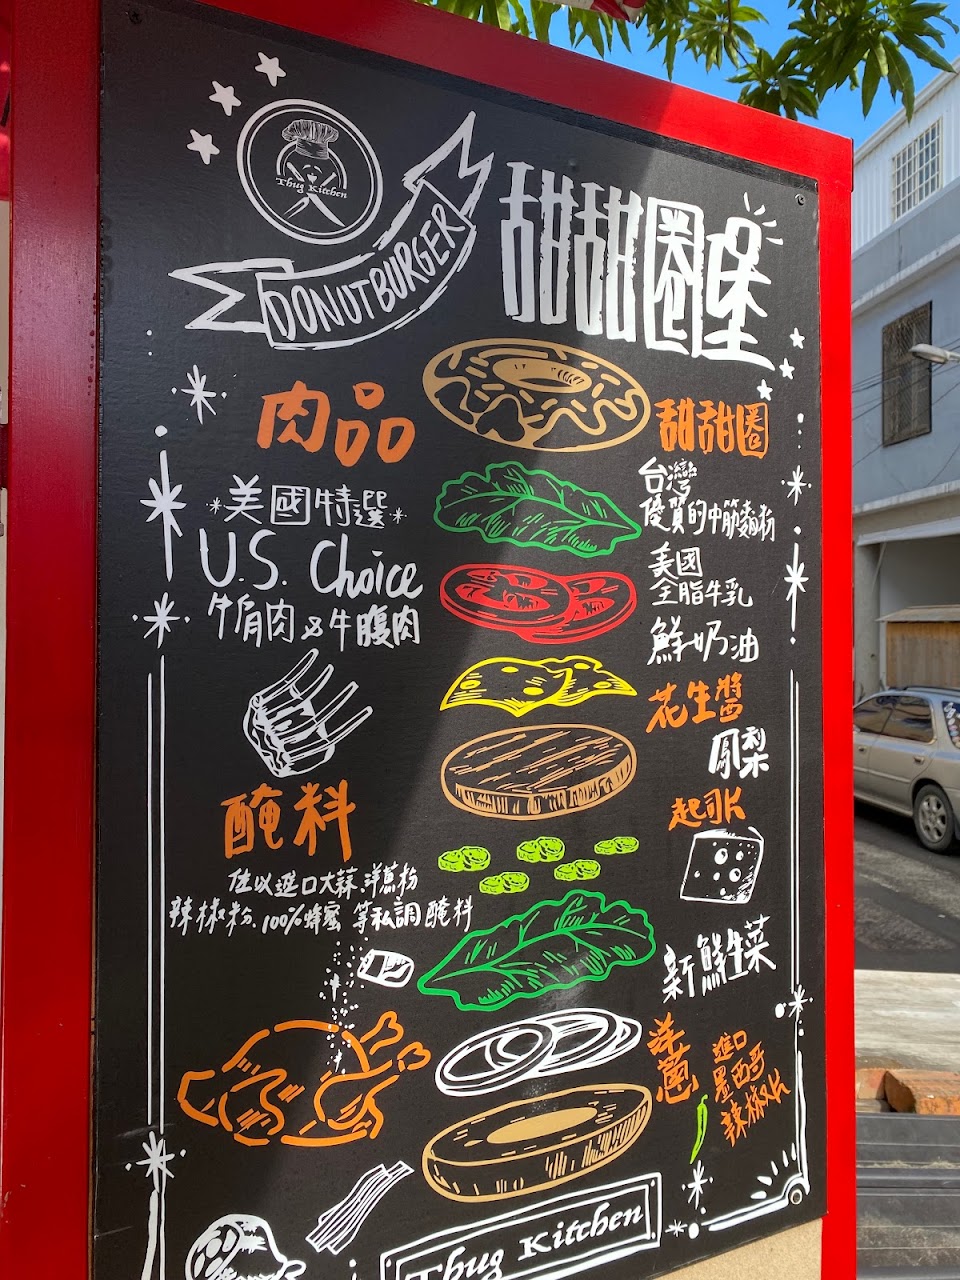 Thug Kitchen
DONUTBURGER
甜甜圈堡
肉品
美國特選
U.S. Choice
牛肩肉&牛腹肉
醃料
佐以進口大蒜、洋蔥粉
辣椒粉、100%蜂蜜 等私調醃料
甜甜圈
台灣
優質的中筋麵粉
美國
全脂牛乳
鮮奶油
花生醬
鳳梨
起司片
新鮮生菜
洋蔥
進口
墨西哥
辣椒片
Thug Kitchen